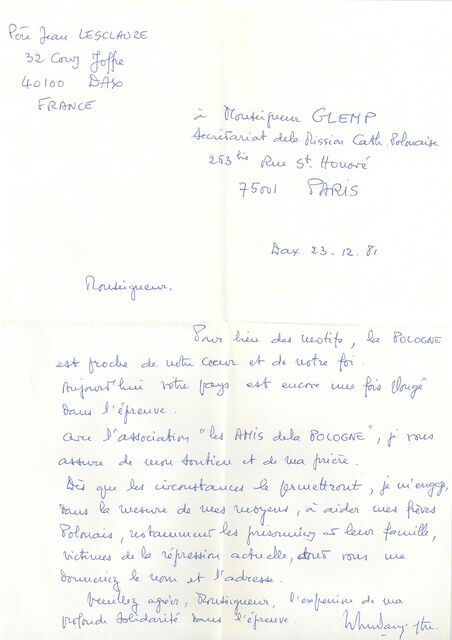 Père Jean LESCLAUZE
32 Cours Joffre
40100 DAX
FRANCE
à Monseigneur GLEMP
Secrétariat de la Mission Cath. Polonaise
263 bis Rue St. Honoré
75001 PARIS
Dax 23.12.81
Monseigneur.
Pour bien des motifs, la POLOGNE
est proche de notre coeur et de notre foi.
Aujourd'hui votre pays est encore une fois plongé
dans l'épreuve.
Avec l'association "les AMIS de la POLOGNE", je vous
assure de mon soutien et de ma prière.
Dès que les circonstances le permettront, je m'engage,
dans la mesure de mes moyens, à aider mes frères
Polonais, notamment les prisonniers et leur famille,
victimes de la répression actuelle, dont vous me
donneriez le nom et l'adresse.
Veuillez agréer, Monseigneur, l'expression de ma
profonde solidarité dans l'épreuve.